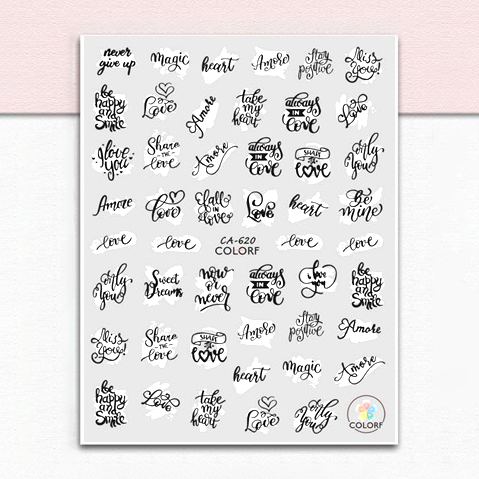 never
give up
magic
heart
Amore
Stay
positive
Miss
You!
be
happy
and
Smile
Love
Amore
take
my
heart
always
IN
love
Love
I love
you
Share
THE
love
Amore
always
IN
love
SHARE
the
LOVE
Only
You
Amore
love
fall
in
love
Love
heart
Be
mine
love
love
CA-620
COLORF
love
love
Only
You
Sweet
Dreams
now
or
never
always
IN
love
I love
you
be
happy
and
Smile
Miss
You!
Share
THE
love
SHARE
the
LOVE
Amore
Stay
positive
Amore
heart
magic
Amore
be
happy
and
Smile
Love
take
my
heart
Love
Only
You
COLORF